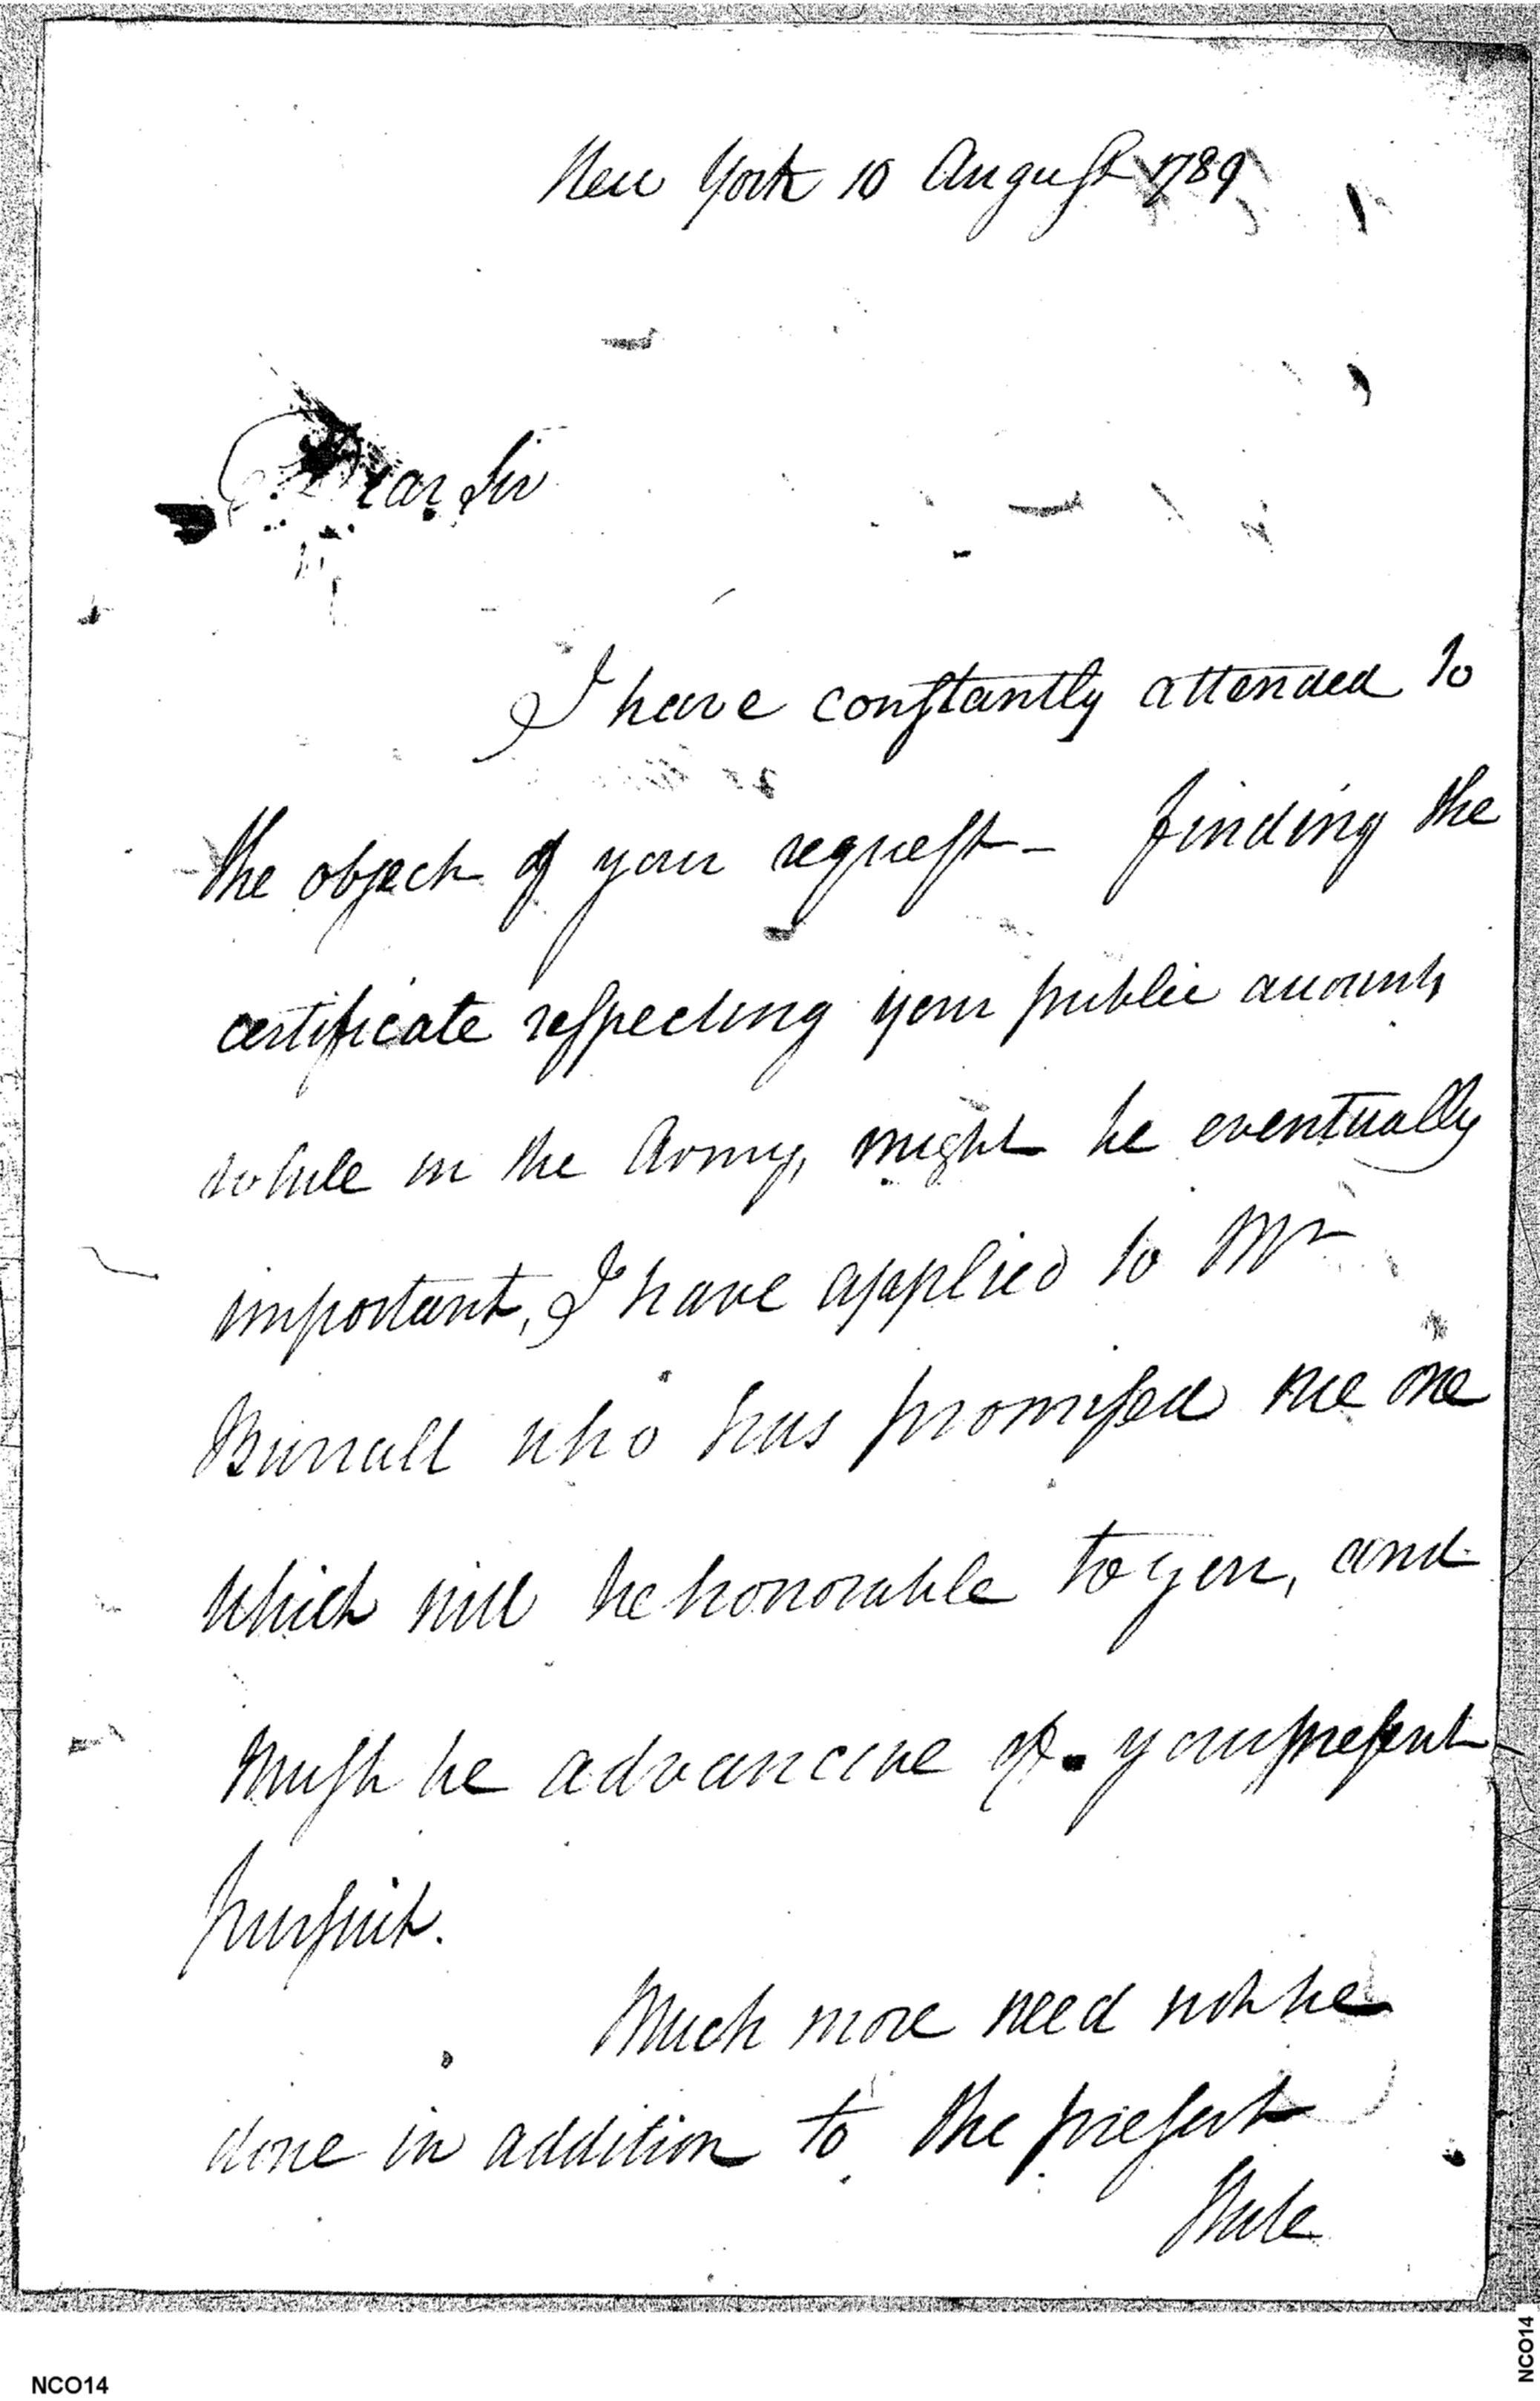 New York 10 August 1789
Dear Sir
I have constantly attended to
the object of your request - finding the
certificate respecting your public accounts
while in the Army, might be eventually
important, I have applied to Mr
Burrall who has promised me one
which will be honorable to you, and
must be advancive of your present
pursuit.
Much more need not be
done in addition to the present
State
NCO14
NCO14